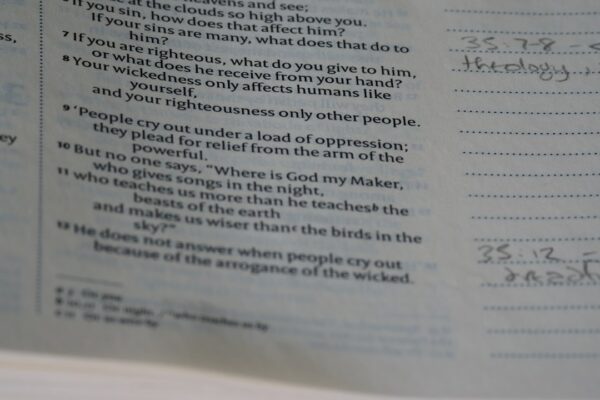 heavens and see;
at the clouds so high above you.
If you sin, how does that affect him?
If your sins are many, what does that do to
him?
7 If you are righteous, what do you give to him,
or what does he receive from your hand?
8 Your wickedness only affects humans like
yourself,
and your righteousness only other people.
9 ‘People cry out under a load of oppression;
they plead for relief from the arm of the
powerful.
10 But no one says, “Where is God my Maker,
who gives songs in the night,
11 who teaches us more than he teaches b the
beasts of the earth
and makes us wiser than c the birds in the
sky?”
12 He does not answer when people cry out
because of the arrogance of the wicked.
ss,
ey
35:7-8 -
theology,
35:12 -